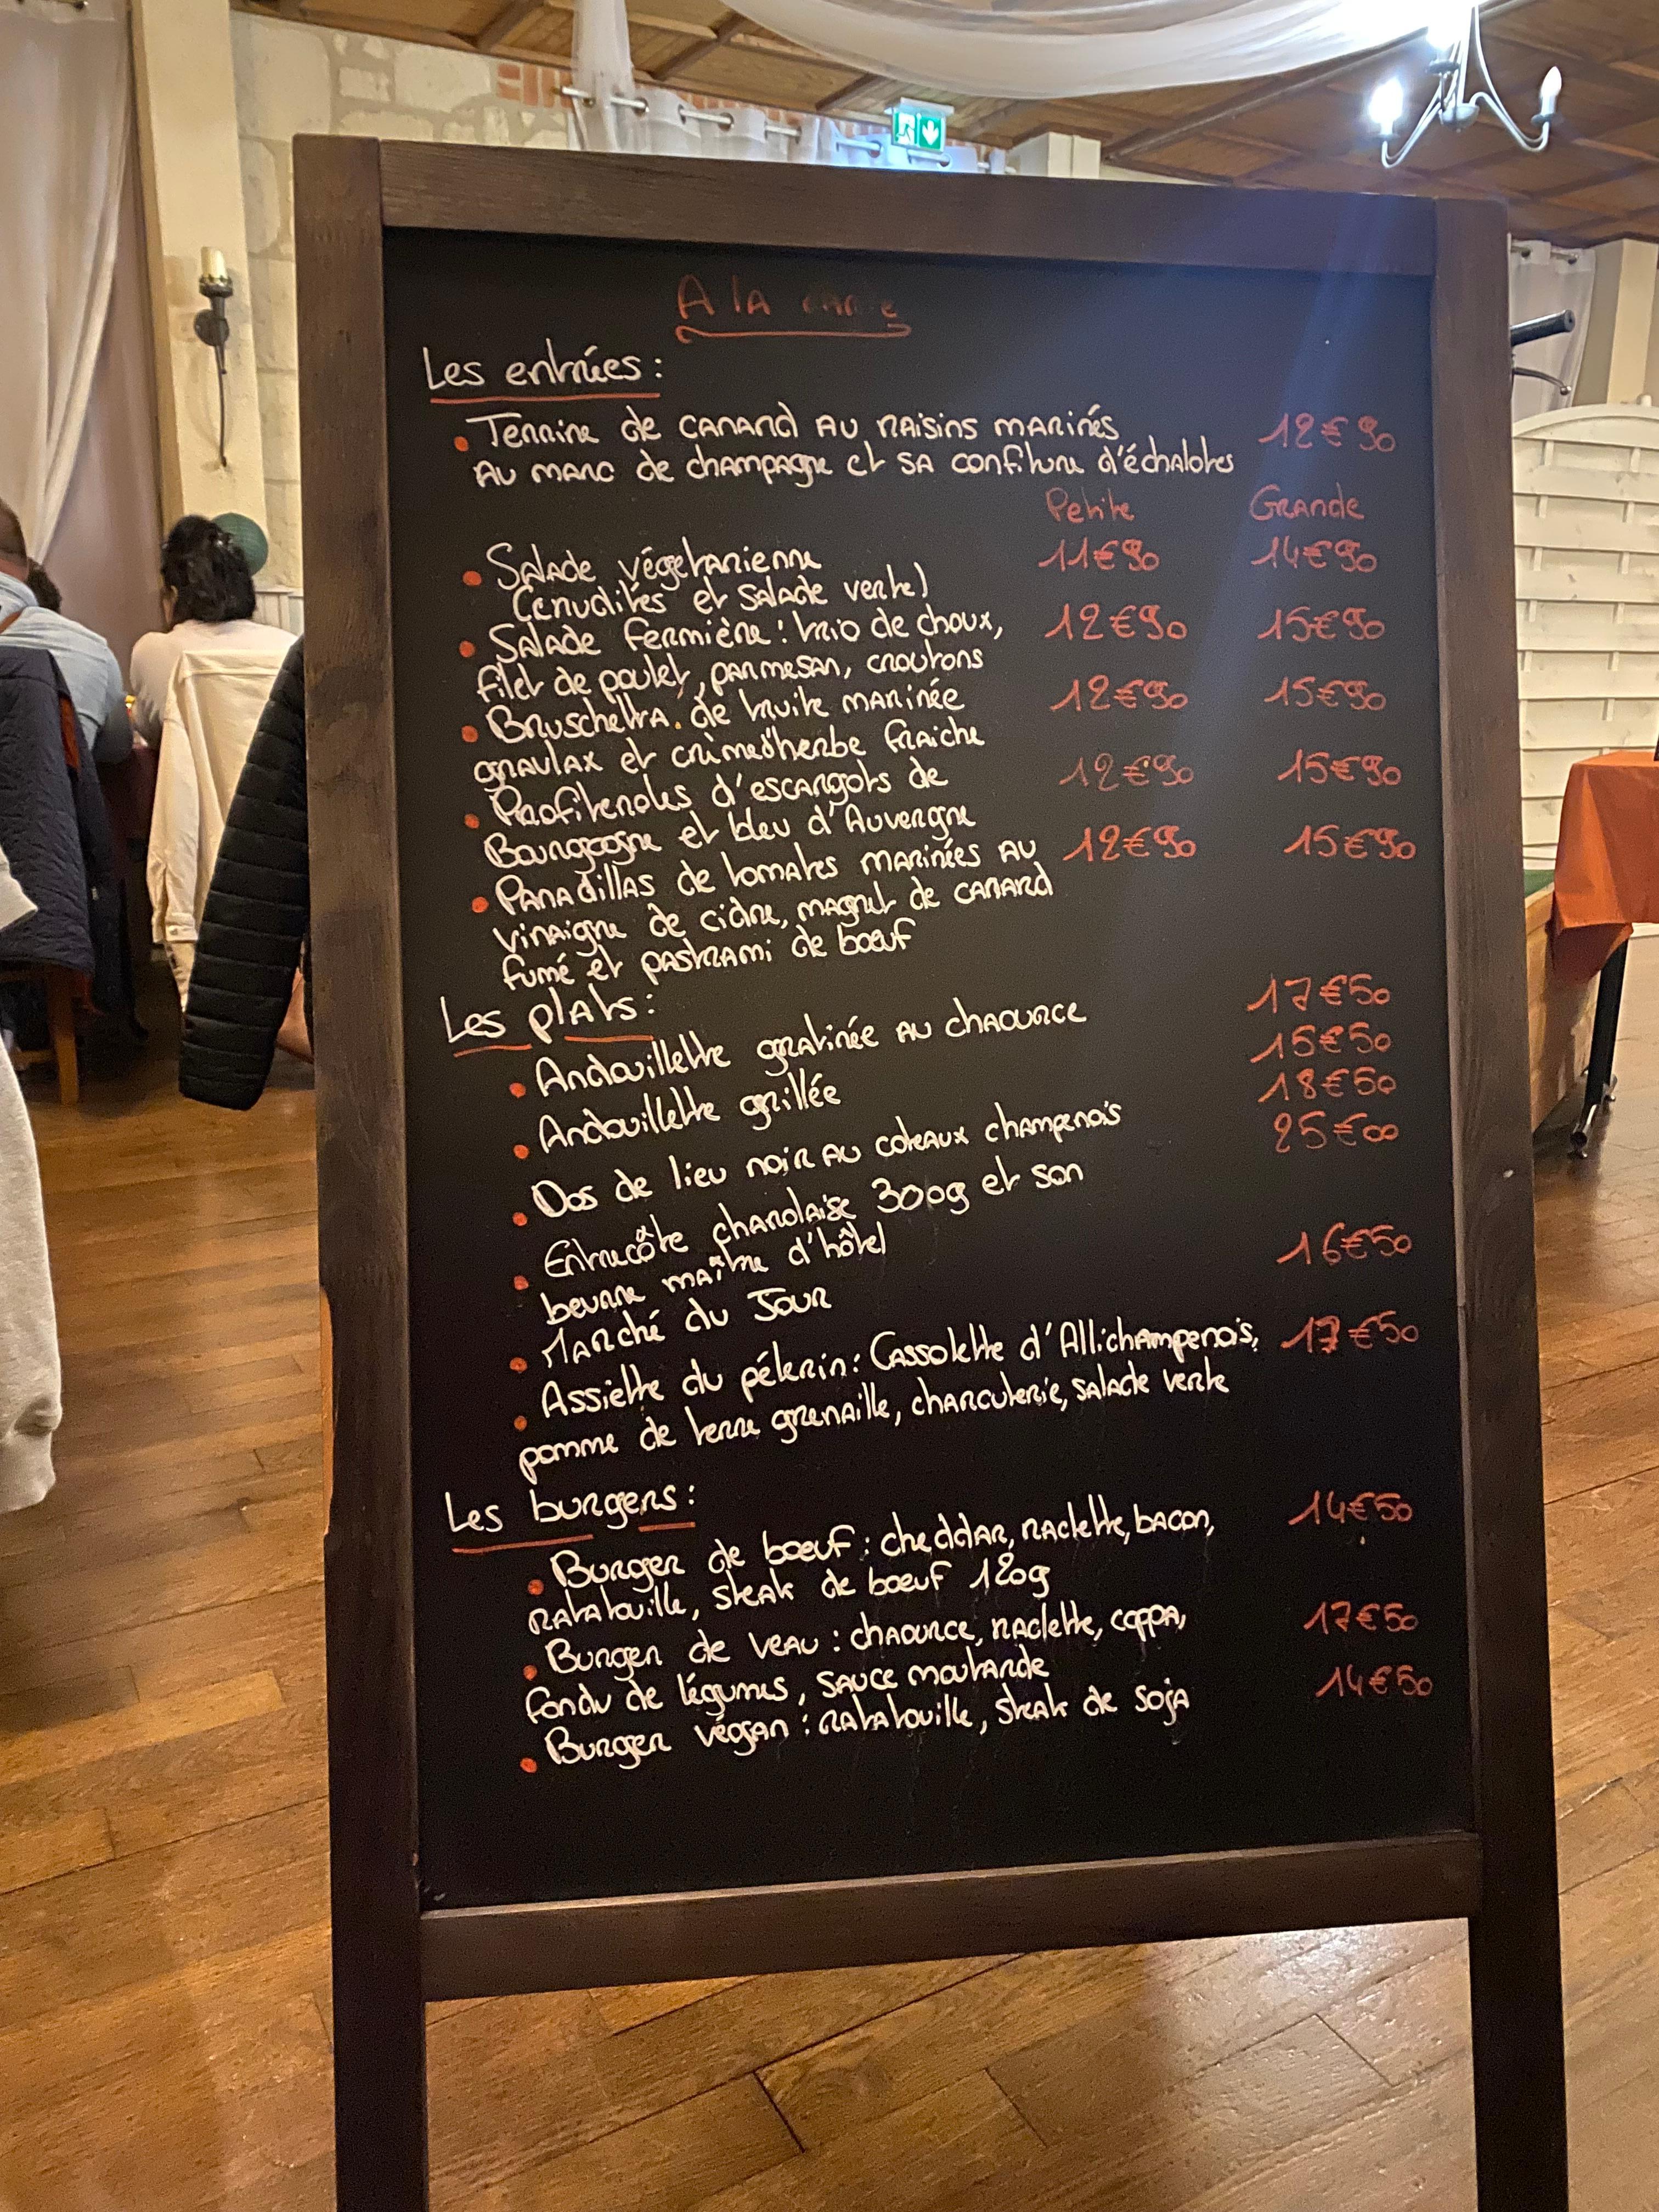 A la carte
Les entrées :
• Terrine de canard au raisins marinés 12€90
au marc de champagne et sa confiture d'échalotes
Petite Grande
• Salade végétarienne 11€90 14€90
(crudités et salade verte)
• Salade fermière : trio de choux, 12€90 15€90
filet de poulet, parmesan, croutons
• Bruschetta de truite marinée 12€90 15€90
gravlax et crème d'herbe fraiche
• Profiteroles d'escargots de 12€90 15€90
Bourgogne et bleu d'Auvergne
• Panadillas de tomates marinées au 12€90 15€90
vinaigre de cidre, magret de canard
fumé et pastrami de bœuf
Les plats :
• Andouillette gratinée au chaource 17€50
• Andouillette grillée 15€50
• Dos de lieu noir au coteaux champenois 18€50
• Entrecôte charolaise 300g et son 25€00
beurre maître d'hôtel
• Marché du Jour 16€50
• Assiette du pélerin : Cassolette d'Allichampenois, 17€50
pomme de terre grenaille, charcuterie, salade verte
Les burgers :
• Burger de bœuf : cheddar, raclette, bacon, 14€50
ratatouille, steak de bœuf 120g
• Burger de veau : chaource, raclette, coppa, 17€50
fondu de légumes, sauce moutarde
• Burger végan : ratatouille, steak de soja 14€50